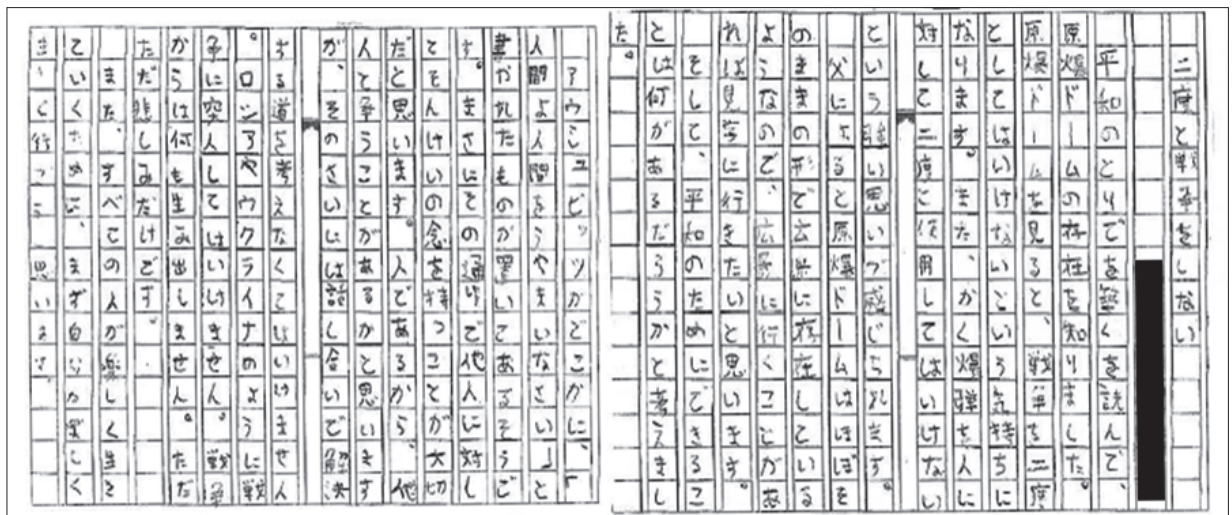 二度と戦争をしない
平和のとりでを築くを読んで、
原爆ドームの存在を知りました。
原爆ドームを見ると、戦争を二度
としてはいけないという気持ちに
なります。また、かく爆弾を人に
対して二度と使用してはいけない
という強い思いが感じられます。
父によると原爆ドームはほぼそ
のままの形で広島に存在している
ようなので、広島に行くことがあ
れば見学に行きたいと思います。
そして、平和のためにできるこ
とは何があるだろうかと考えまし
た。
アウシュビッツがどこかに、「
人間よ人間をうやまいなさい」と
書かれたものが置いてあるそうで
す。まさにその通りで他人に対し
てそんけいの念を持つことが大切
だと思います。人であるから、他
人と争うことがあるかと思います
が、そのさいには話し合いで解決
する道を考えなくてはいけません
。ロシアやウクライナのように戦
争に突入してはいけません。戦争
からは何も生み出しません。ただ
ただ悲しみだけです。
また、すべての人が楽しく生き
ていくために、まず自分が楽しく
行こう思います